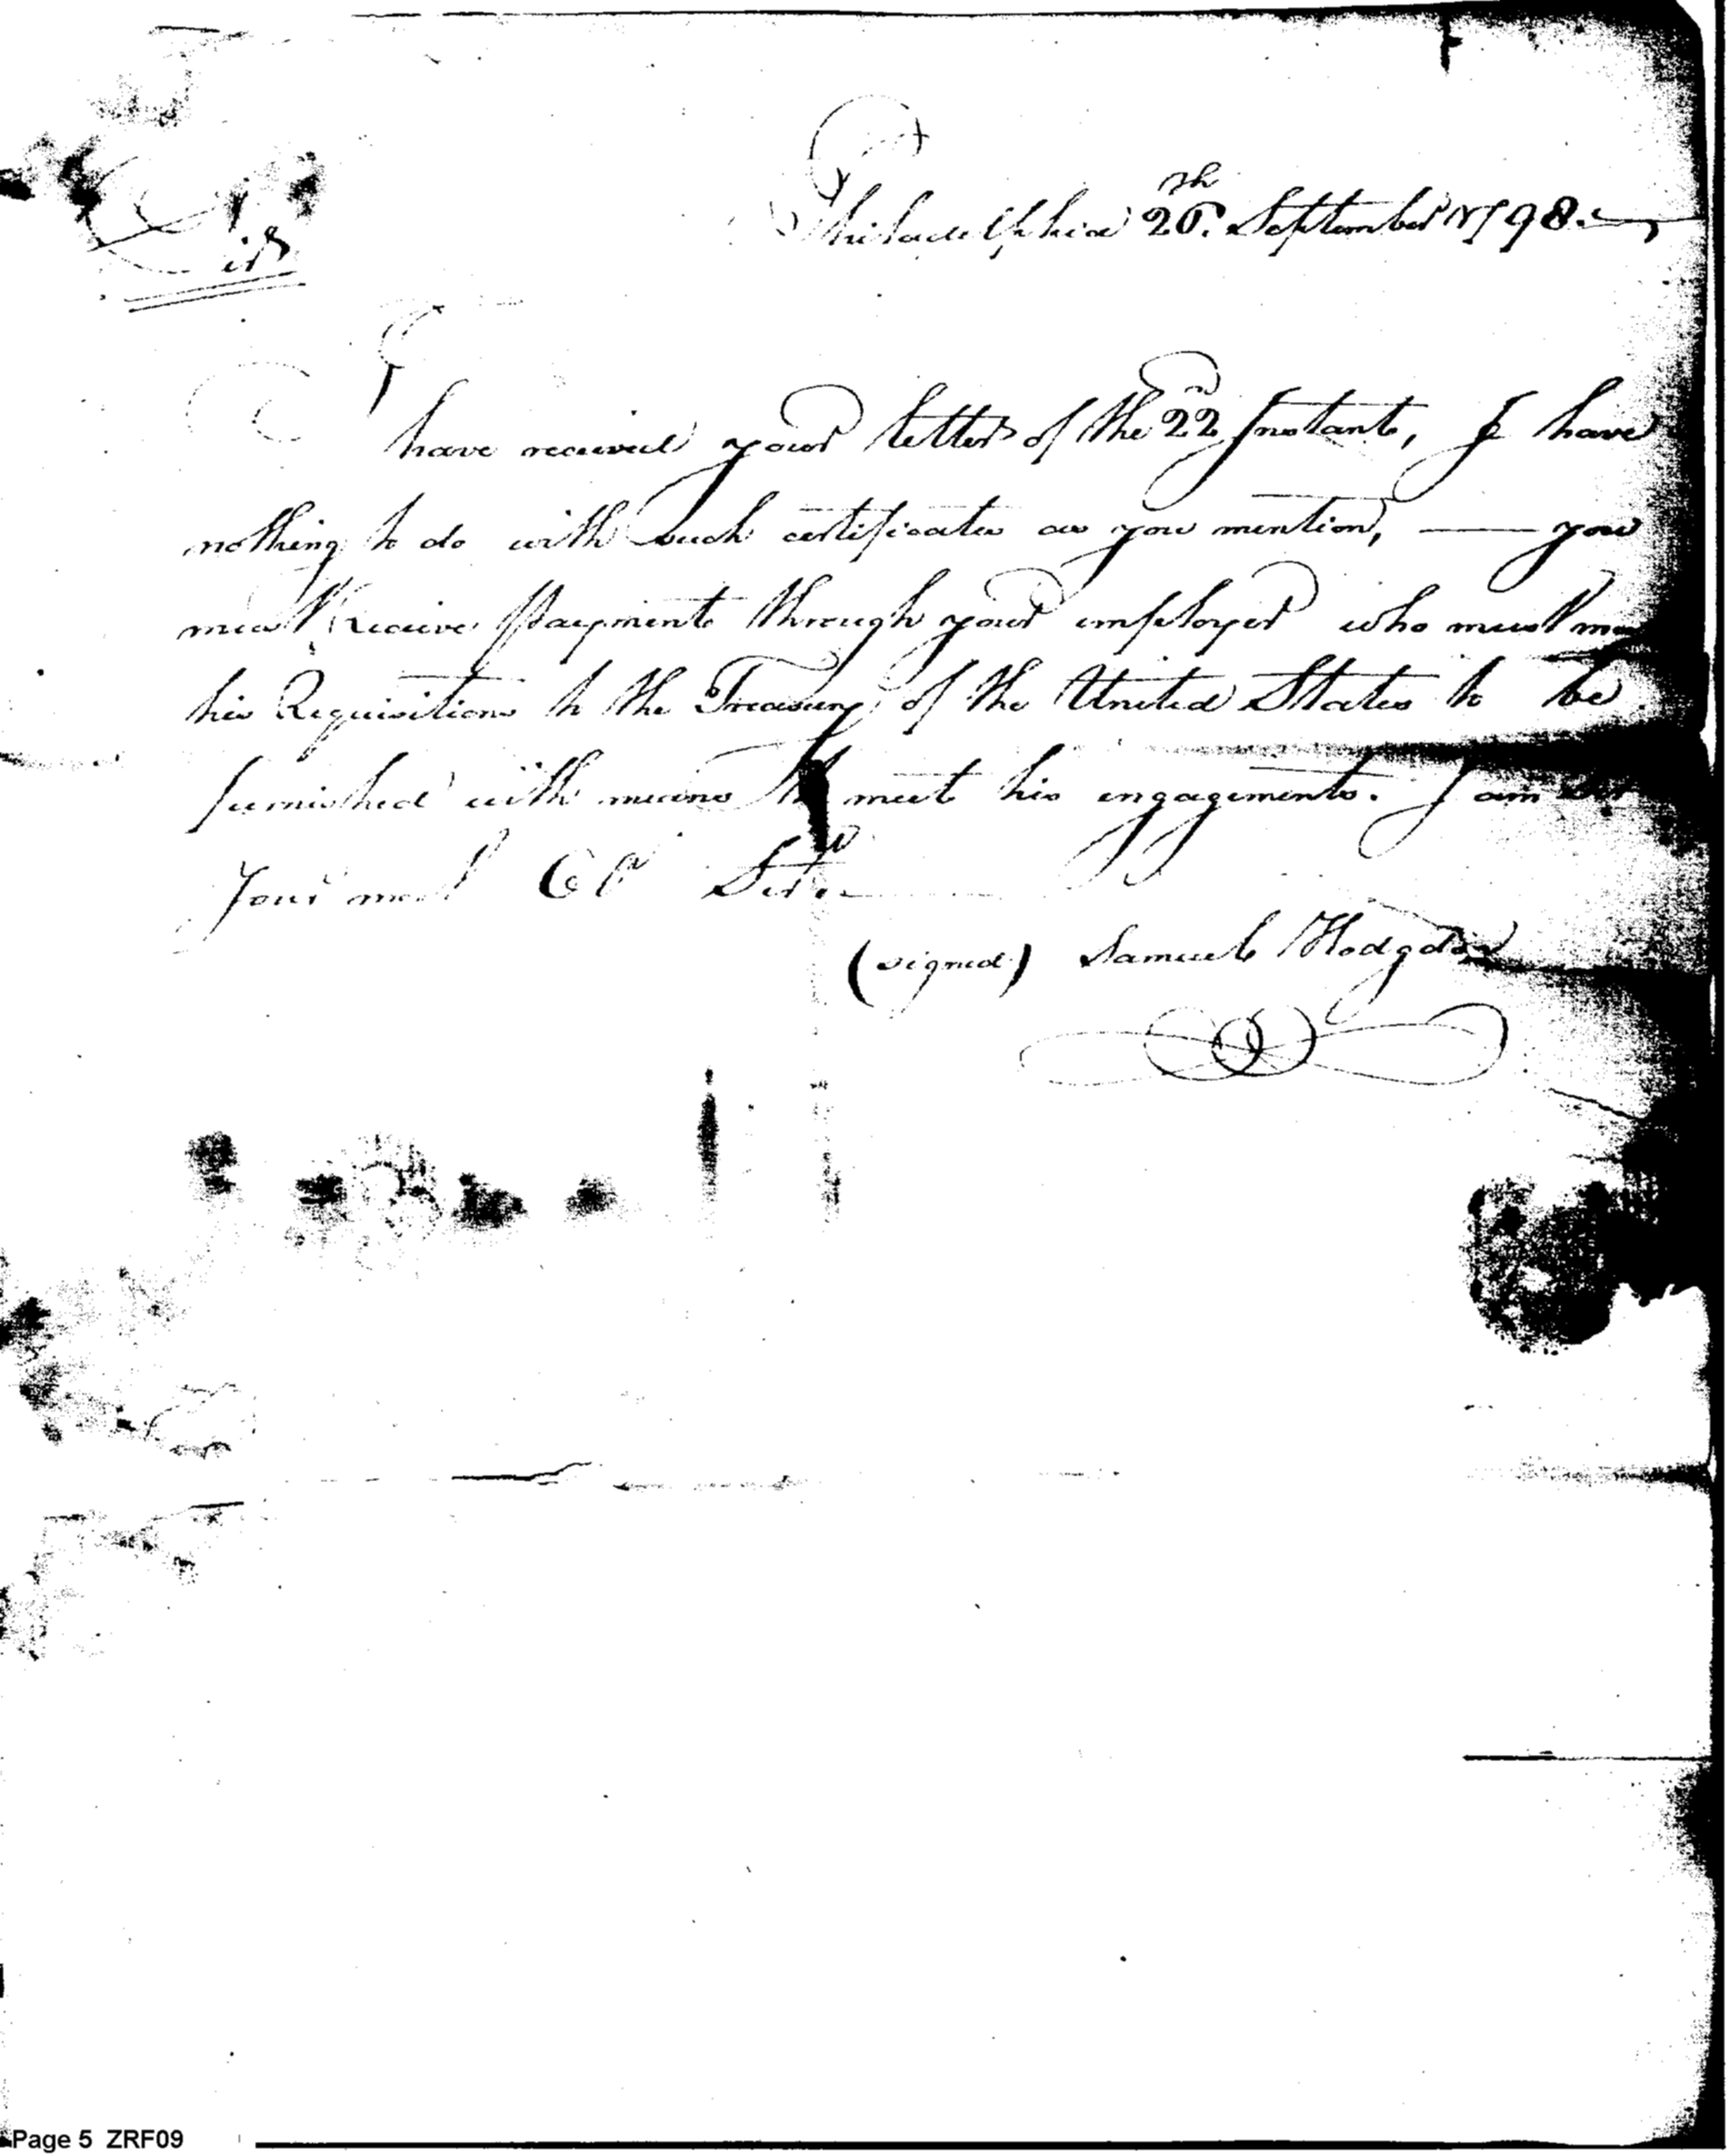 Philadelphia 26th. September 1798.
Sir
I have received your letter of the 22nd Instant, I have
nothing to do with such certificates as you mention, — you
must receive Payment through your employer who must
his Requisitions to the Treasury of the United States to be
furnished with means to meet his engagements. I am Sir
Your most Ob Servt.
(signed) Samuel Hodgdon
Page 5 ZRF09